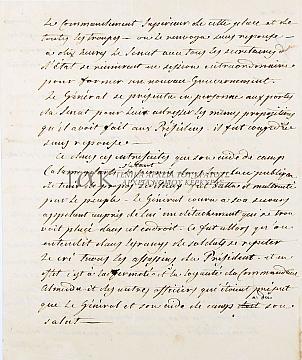 Le Commandement Supérieur de cette place et de
toutes les troupes — on le renvoya sans reponse —
a dix heures le Senat avec tous les secretaires
d'Etat se reunirent en session extraordinaire
pour former un nouveau Gouvernement.
Le Général se presenta en personne aux portes
du Senat pour leur adresser les mêmes propositions
qu'il avoit fait au Président, il fut congedié
sans reponse —
Ce dans ces entrefaites que son aide de camp
s'etant
place publique
maltraité
par le peuple — Le Général courut a son secours
appellant auprès de lui un detachement qui se trou-
voit placé dans cet endroit. Ce fut alors qu'on
entendit dans les rangs de soldats se repeter
le cri tuons les assassins du Président — et en
effet c'est a la fermeté et la loyauté du Commandant
Almeida et des autres officiers qui étoient présent
que le Général et son aide de camp doit son
salut —